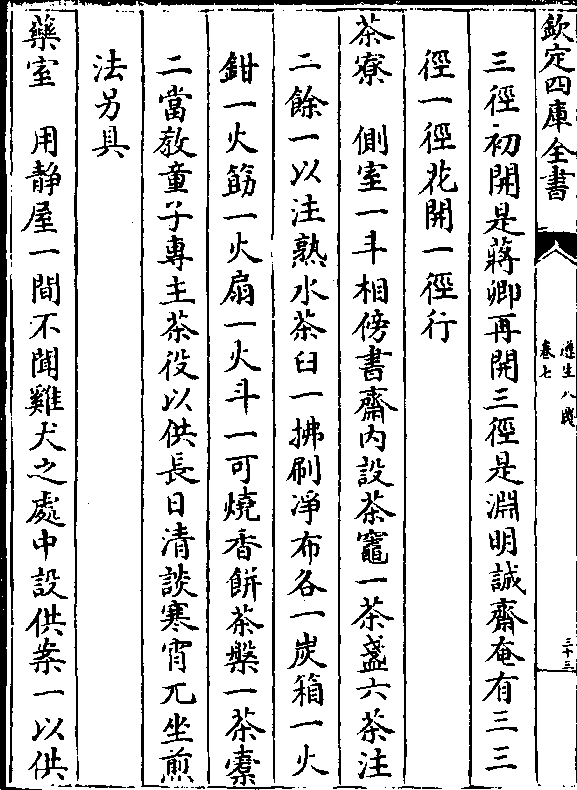 欽定四庫全書
遵生八牋
卷七
三十三
三徑初開是蔣卿再開三徑是淵明誠齋奄有三三
徑一徑花開一徑行
茶寮 側室一斗相傍書齋內設茶竈一茶盞六茶注
二餘一以注熟水茶臼一拂刷凈布各一炭箱一火
鉗一火筯一火扇一火斗一可燒香餅茶盤一茶橐
二當教童子專主茶役以供長日清談寒宵兀坐煎
法另具
藥室 用靜屋一間不聞雞犬之處中設供案一以供